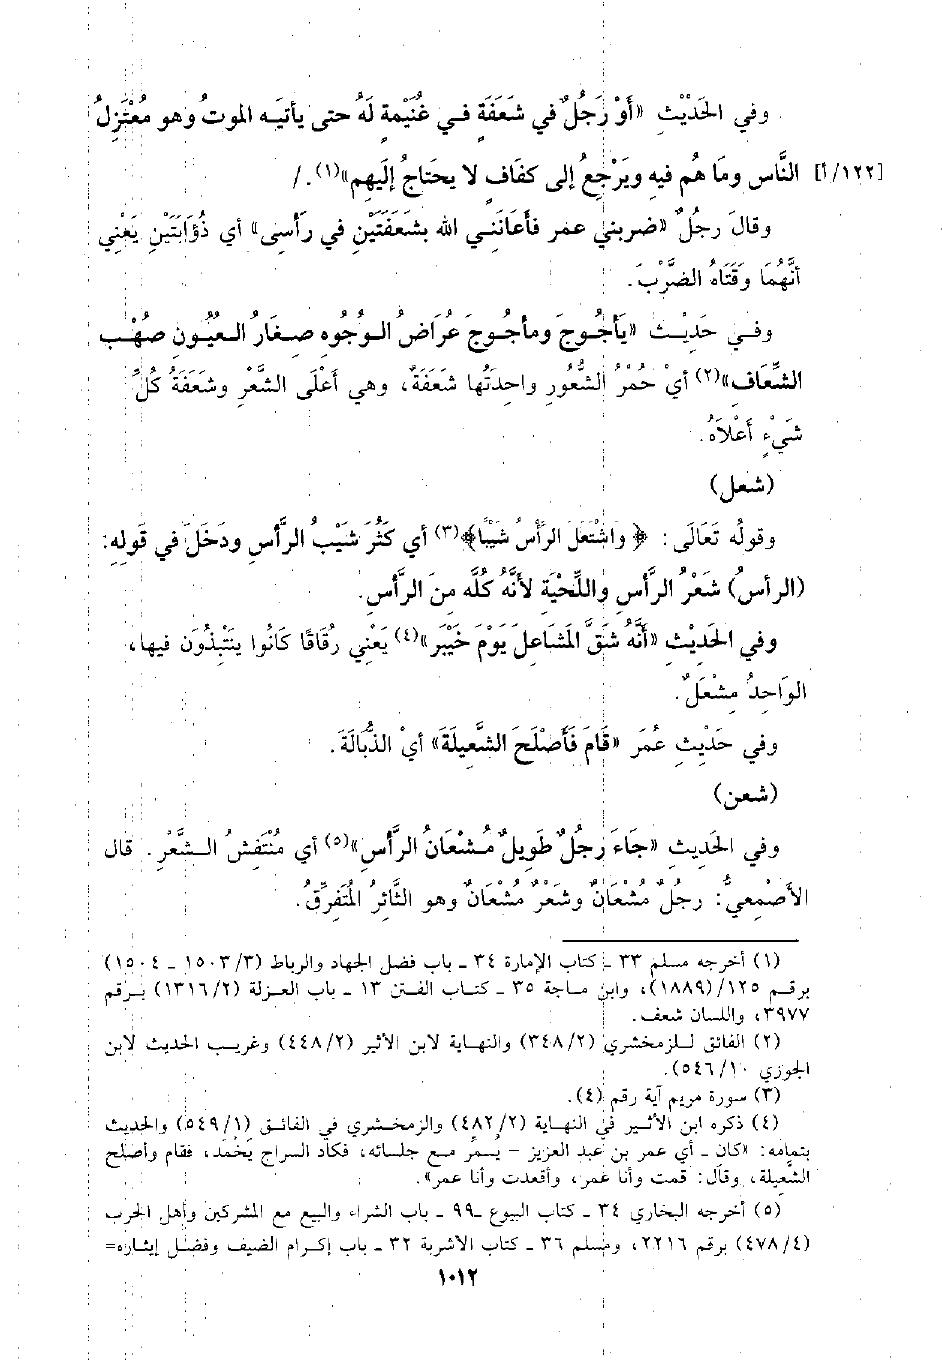 وفي الحَدْيثِ «أَوْ رَجُلٌ في شَعَفَةٍ فِي غُنَيْمة لَهُ حتى يأتيَه الموتُ وهو مُعْتَزِلُ
[١٢٢/أ] النَّاس ومَا هُم فيهِ ويَرْجِعُ إلى كفَافٍ لا يحتَاجُ إلَيهِم»(١). /
وقالَ رجُلٌ «ضربني عمر فأعَانَني الله بشَعَفَتَيْنِ في رَأسي» أي ذُؤَابَتَيْنِ يَعْنِي
أنَّهُمَا وقَتَاهُ الضَّرْبَ.
وفي حَدْيثِ «يَأجُوجَ ومأجُوجَ عرَاضُ الوجُوه صغَارُ العيُون صُهْب
الشِّعَاف»(٢) أيْ حُمْرُ الشُّعُورِ واحدَتُها شَعَفَةٌ، وهي أَعْلَى الشَّعْرِ وشَعَفَةُ كُلِّ
شَيْءٍ أَعْلاَهُ.
(شعل)
وقولُه تَعَالَى: ﴿ وَاشْتَعَلَ الرَأسُ شَيْبًا﴾(٣) أي كَثُرَ شَيْبُ الرَّأسِ ودَخَلَ في قَولِهِ:
(الرأسُ) شَعْرُ الرَّأسِ واللِّحْيَةِ لأنَّهُ كُلَّه منَ الرَّأسِ.
وفي الحَدْيثِ «أنَّهُ شقَّ المَشَاعلَ يَوْمَ خَيْبَر»(٤) يَعْنِي زقَاقًا كَانُوا ينَتْبذُون فيها،
الوَاحدُ مِشْعَلٌ.
وفي حَدْيثِ عُمَرَ «قَامَ فَأصْلَحَ الشَّعيلَةَ» أيْ الذُّبَالَةَ.
(شعن)
وفي الحَدِيثِ «جَاءَ رَجُلٌ طَويلٌ مُشْعَانُ الرَّأس»(٥) أي مُنْتَفشُ الشَّعْرِ. قال
الأصْمعيُّ: رجُلٌ مُشْعَانٌ وشَعْرٌ مُشْعَانٌ وهو الثَّائرُ المُتَفرِّقُ.
(١) أخرجه مسلم ٣٣ ـ كتاب الإمارة ٣٤ ـ باب فضل الجهاد والرباط (١٥٠٣/٣ ـ ١٥٠٤)
برقم ١٢٥/(١٨٨٩)، وابن ماجة ٣٥ ـ كتاب الفتن ١٣ ـ باب العزلة (١٣١٦/٢) برقم
٣٩٧٧، واللسان شعف.
(٢) الفائق للزمخشري (٣٤٨/٢) والنهاية لابن الأثير (٤٤٨/٢) وغريب الحديث لابن
الجوزي ٥٤٦/١٠).
(٣) سورة مريم آية رقم (٤).
(٤) ذكره ابن الأثير في النهاية (٤٨٢/٢) والزمخشري في الفائق (٥٤٩/١) والحديث
بتمامه: «كان ـ أي عمر بن عبد العزيز - يسمر مع جلسائه، فكاد السراج يَخمد، فقام وأصلح
الشَّعيلة، وقال: قمت وأنا عمر، وأقعدت وأنا عمر».
(٥) أخرجه البخاري ٣٤ ـ كتاب البيوع ـ٩٩ ـ باب الشراء والبيع مع المشركين وأهل الحرب
(٤٧٨/٤) برقم ٢٢١٦، ومسلم ٣٦ ـ كتاب الأشربة ٣٢ ـ باب إكرام الضيف وفضل إيثاره=
١٠١٢